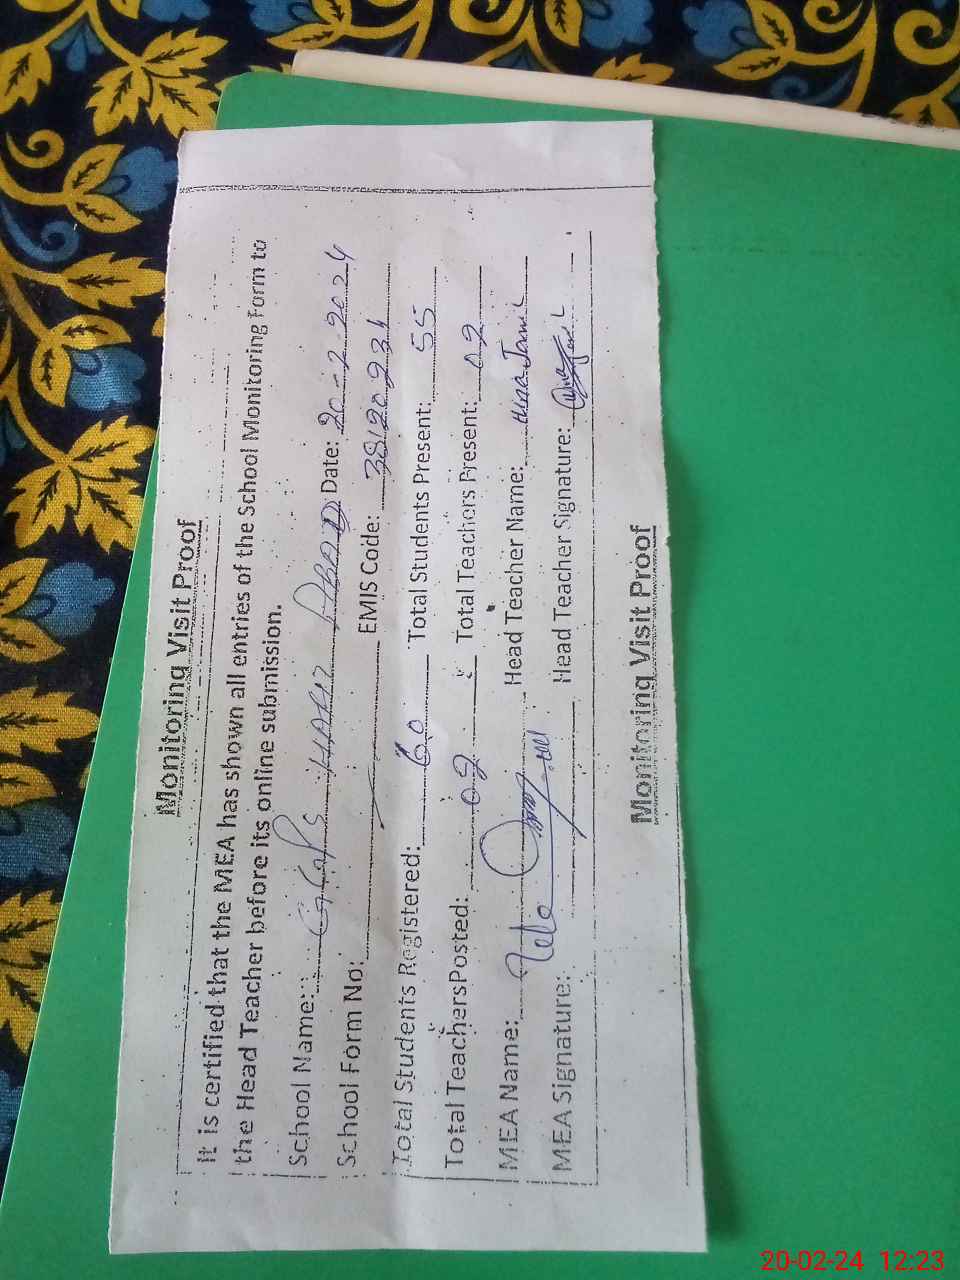 Monitoring Visit Proof
It is certified that the MEA has shown all entries of the School Monitoring Form to
the Head Teacher before its online submission.
School Name: GGPS Date: 20-2-2024
School Form No: EMIS Code:
Total Students Registered: 60 Total Students Present: 55
Total Teachers Posted: 02 Total Teachers Present: 02
MEA Name: Head Teacher Name: Hina Jamil
MEA Signature: Head Teacher Signature:
Monitoring Visit Proof
20-02-24 12:23